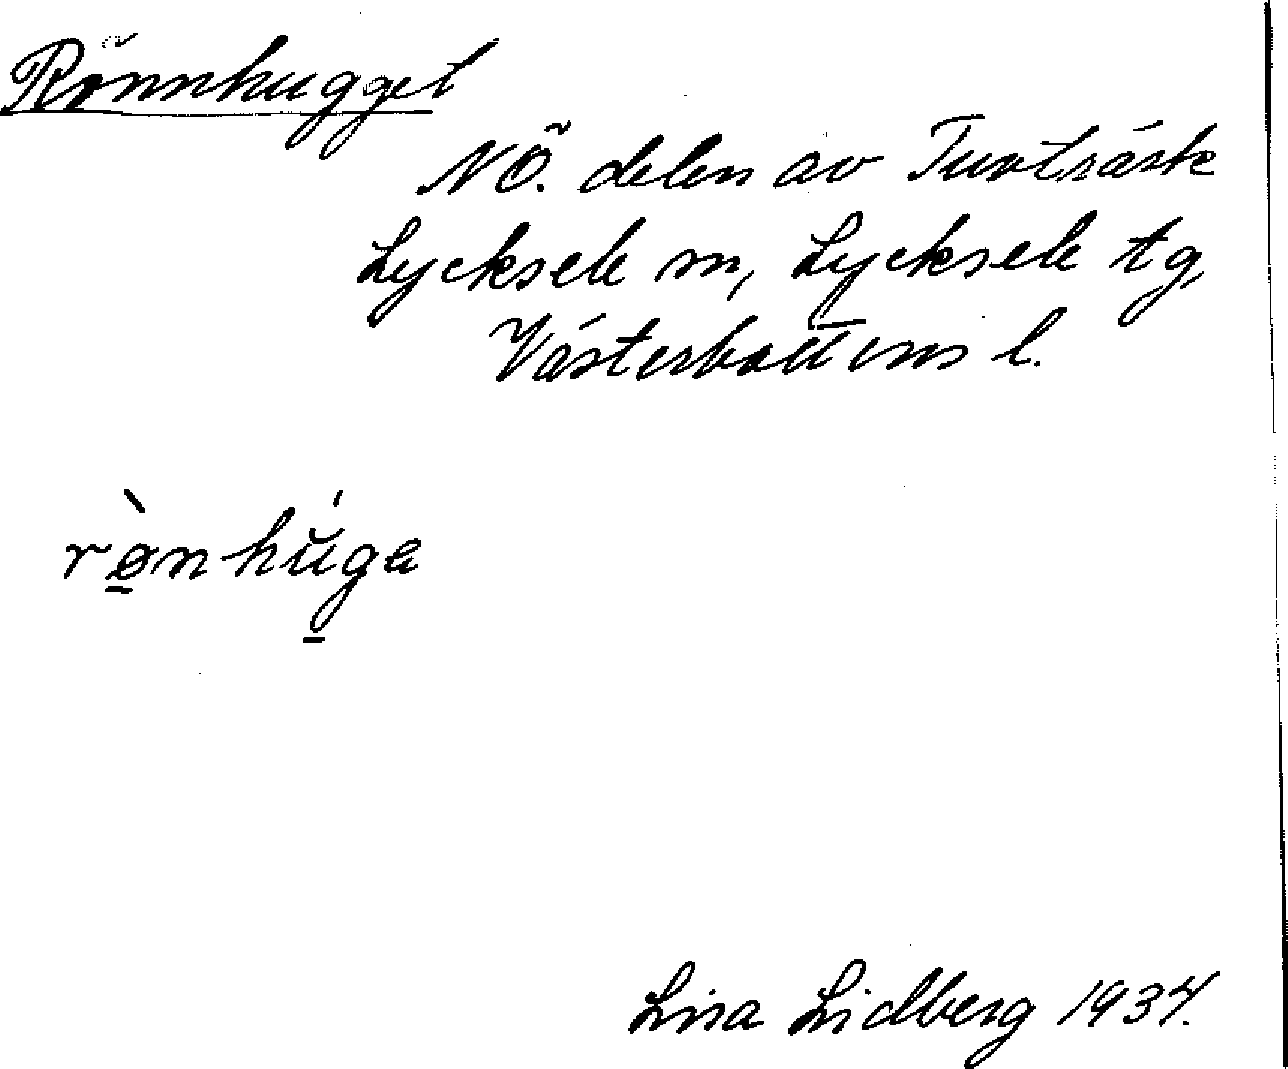 Rönnhugget
NÖ. delen av Tuvträsk
Lycksele m, Lycksele tg
Västerbottens l.
rø̠̀nhŭ́g̠e
Lisa Lidberg 1934.